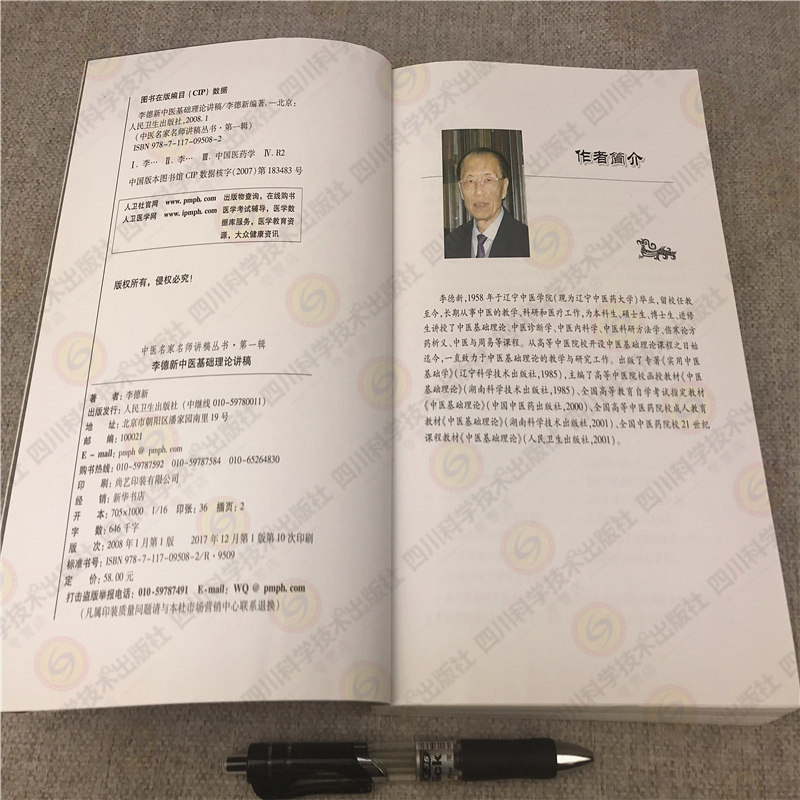 图书在版编目(CIP)数据
李德新中医基础理论讲稿/李德新编著.—北京:
人民卫生出版社,2008.1
(中医名家名师讲稿丛书·第一辑)
ISBN 978-7-117-09508-2
Ⅰ.李… Ⅱ.李… Ⅲ.中国医药学 Ⅳ.R2
中国版本图书馆CIP数据核字(2007)第183483号
人卫社官网 www.pmph.com 出版物查询,在线购书
人卫医学网 www.ipmph.com 医学考试辅导,医学数
据库服务,医学教育资
源,大众健康资讯
版权所有,侵权必究!
中医名家名师讲稿丛书·第一辑
李德新中医基础理论讲稿
著 者:李德新
出版发行:人民卫生出版社(中继线 010-59780011)
地 址:北京市朝阳区潘家园南里19号
邮 编:100021
E-mail:pmph @ pmph.com
购书热线:010-59787592 010-59787584 010-65264830
印 刷:尚艺印装有限公司
经 销:新华书店
开 本:705×1000 1/16 印张:36 插页:2
字 数:646千字
版 次:2008年1月第1版 2017年12月第1版第10次印刷
标准书号:ISBN 978-7-117-09508-2/R·9509
定 价:58.00元
打击盗版举报电话:010-59787491 E-mail:WQ @ pmph.com
(凡属印装质量问题请与本社市场营销中心联系退换)
作者简介
李德新,1958年于辽宁中医学院(现为辽宁中医药大学)毕业,留校任教
至今,长期从事中医的教学、科研和医疗工作,为本科生、硕士生、博士生、进修
生讲授了中医基础理论、中医诊断学、中医内科学、中医科研方法学、伤寒论方
药析义、中医与周易等课程。从高等中医院校开设中医基础理论课程之日始
迄今,一直致力于中医基础理论的教学与研究工作。出版了专著《实用中医
基础学》(辽宁科学技术出版社,1985),主编了高等中医院校函授教材《中医
基础理论》(湖南科学技术出版社,1985)、全国高等教育自学考试指定教材
《中医基础理论》(中国中医药出版社,2000)、全国高等中医药院校成人教育
教材《中医基础理论》(湖南科学技术出版社,2001)、全国中医药院校21世纪
课程教材《中医基础理论》(人民卫生出版社,2001)。
四川科学技术出版社